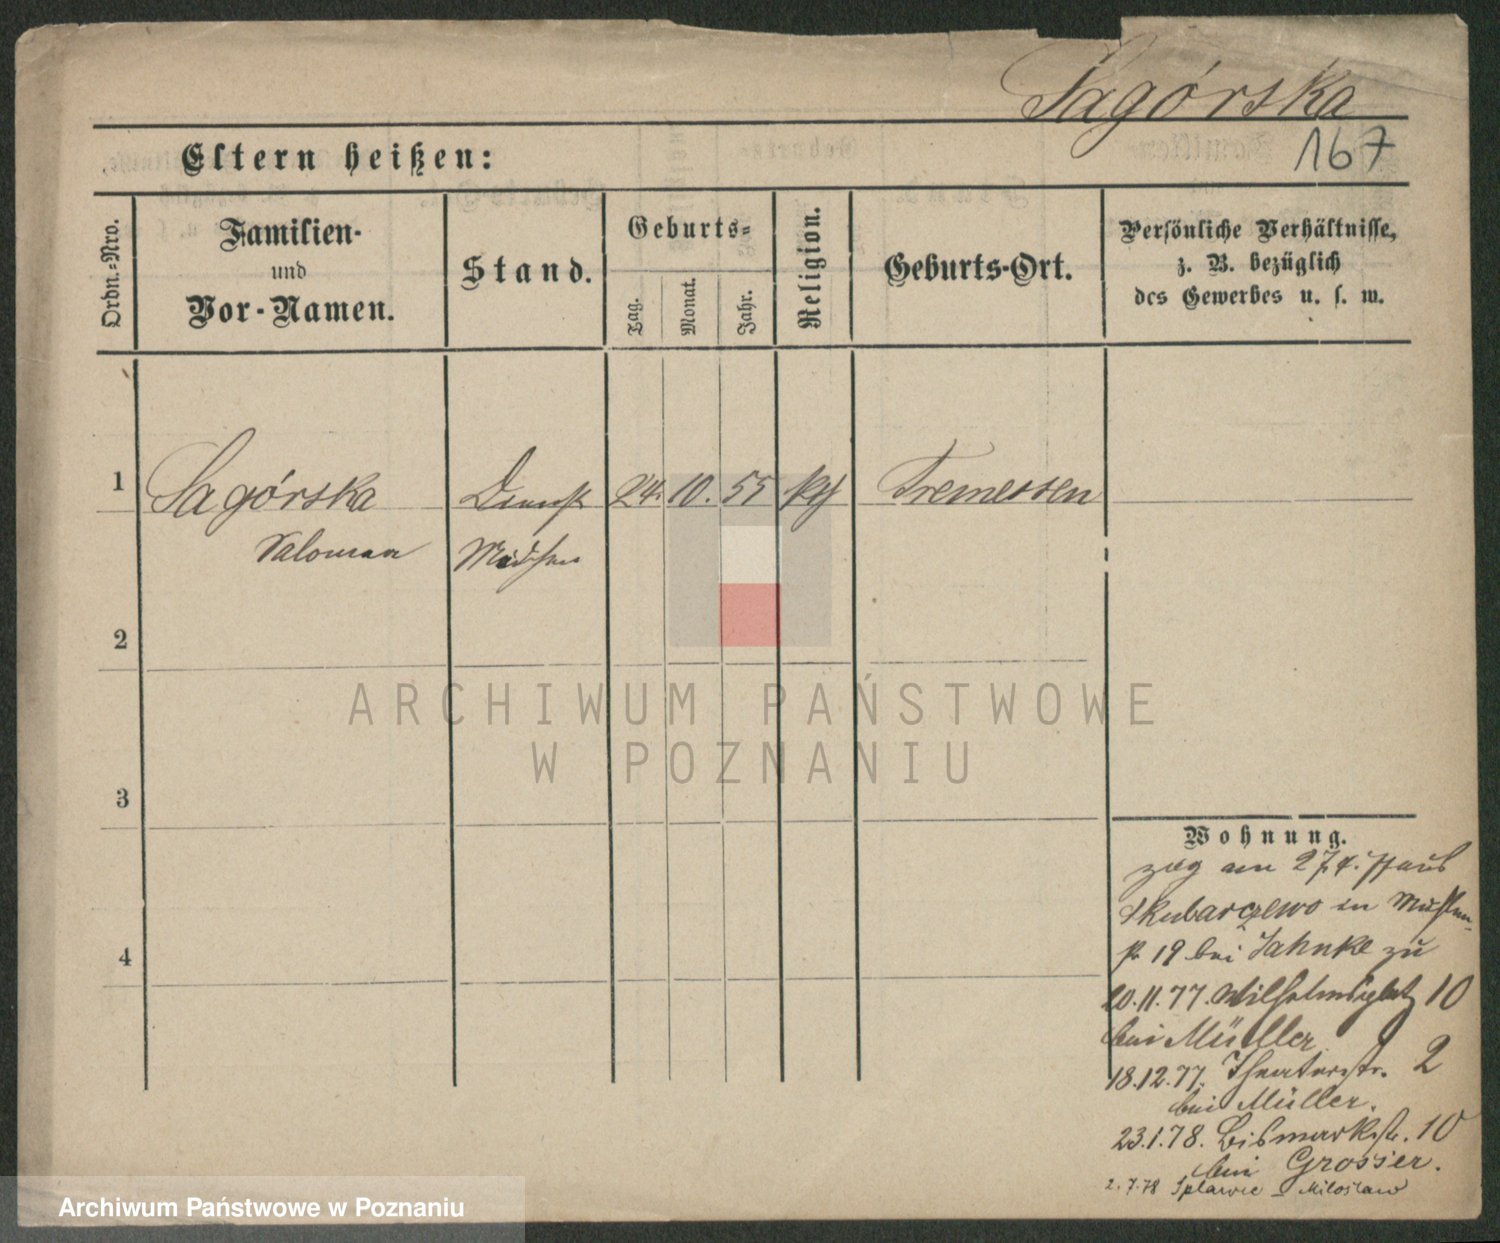 Sagórska
167
Eltern heißen:
Ordn.=Nro.
Familien-
und
Vor-Namen.
Stand.
Geburts=
Tag.
Monat.
Jahr.
Religion.
Geburts-Ort.
Persönliche Verhältnisse,
z. B. bezüglich
des Gewerbes u. s. w.
1 Sagórska Dienst 24. 10. 55 Tremessen
Salomea Mädchen
2
ARCHIWUM PAŃSTWOWE
W POZNANIU
3
4
Wohnung.
zog am 27.4.
Skubarczewo in
19 bei Jahnke zu
20.11.77. Wilhelmsplatz 10
bei Müller
18.12.77. Theaterstr. 2
bei Müller.
23.1.78. Bismarkstr. 10
bei Grosser.
2.7.78 Splawie - Miloslaw
Archiwum Państwowe w Poznaniu